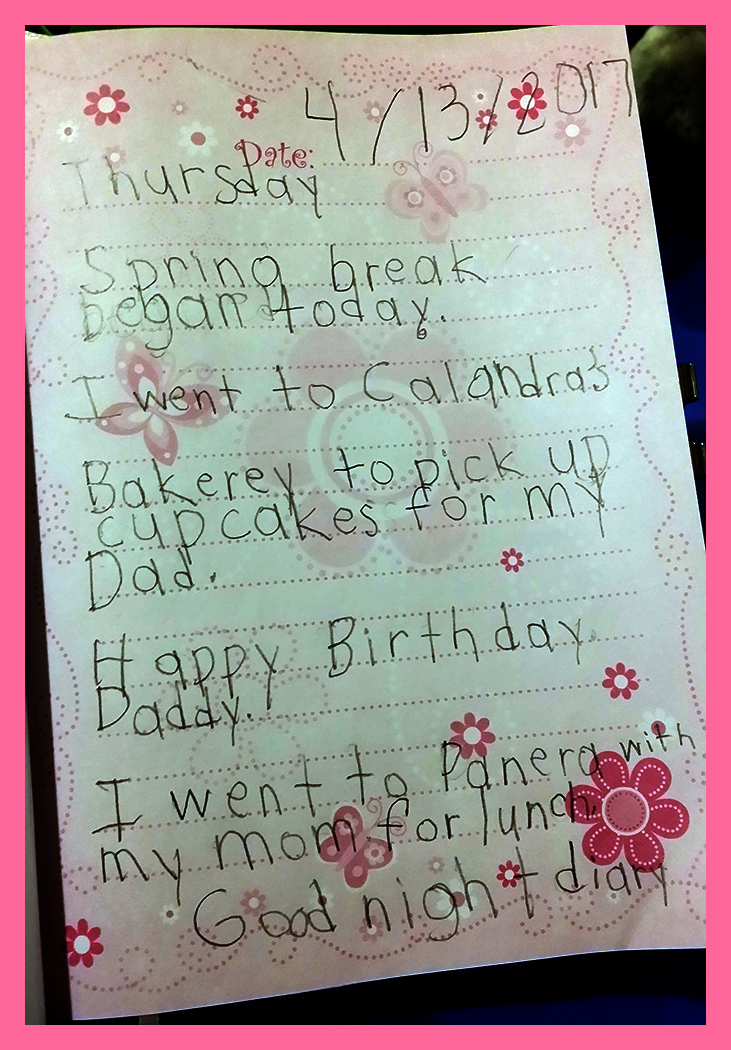 4/13/2017
Date:
Thursday
Spring break
began today.
I went to Calandra's
Bakerey to pick up
cupcakes for my
Dad.
Happy Birthday
Daddy.
I went to Panera with
my mom for lunch.
Good night diary